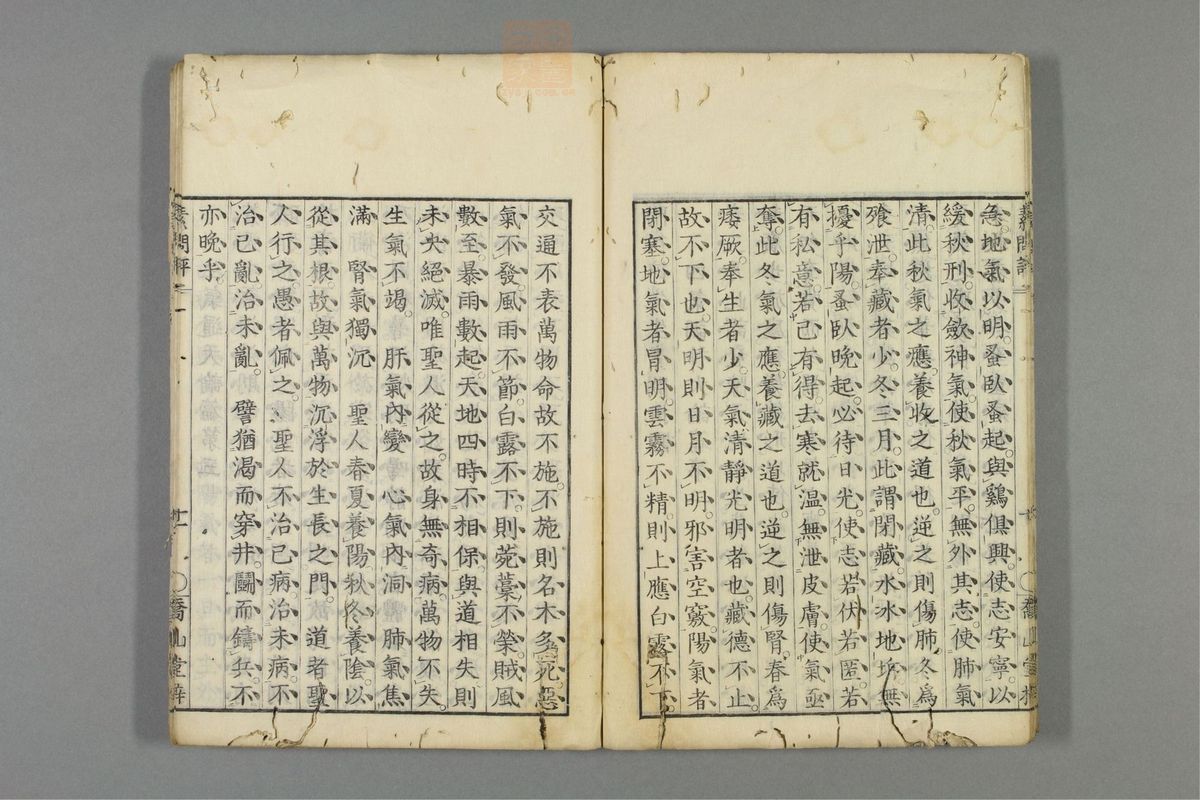 急地氣以明蚤臥蚤起與鷄俱興使志安寧以
緩秋刑收斂神氣使秋氣平無外其志使肺氣
清此秋氣之應養收之道也逆之則傷肺冬爲
飱泄奉藏者少冬三月此謂閉藏水冰地坼無
擾乎陽蚤臥晚起必待日光使志若伏若匿若
有私意若己有得去寒就温無泄皮膚使氣亟
奪此冬氣之應養藏之道也逆之則傷腎春爲
痿厥奉生者少天氣清靜光明者也藏德不止
故不下也天明則日月不明邪害空竅陽氣者
閉塞地氣者冒明雲霧不精則上應白露不下
交通不表萬物命故不施不施則名木多死惡
氣不發風雨不節白露不下則菀藁不榮賊風
數至暴雨數起天地四時不相保與道相失則
未央絕滅唯聖人從之故身無奇病萬物不失
生氣不竭 肝氣內變 心氣內洞 肺氣焦
滿 腎氣獨沉 聖人春夏養陽秋冬養陰以
從其根故與萬物沉浮於生長之門 道者聖
人行之愚者佩之 聖人不治已病治未病不
治已亂治未亂 譬猶渴而穿井鬭而鑄兵不
亦晚乎
素問評 一
十一
喬山堂梓